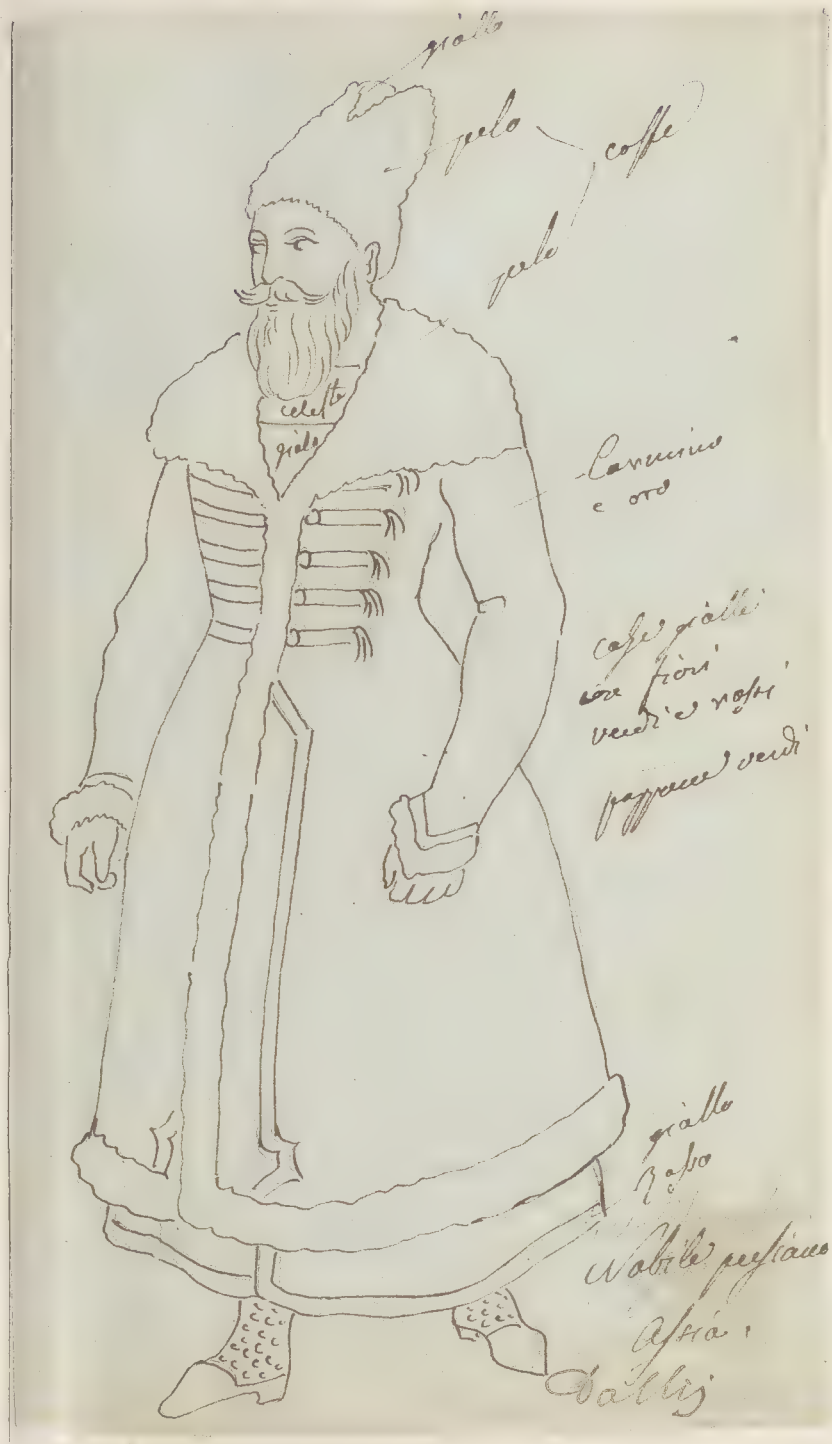 giallo
pelo
coffe
pelo
celeste
giallo
Carmino
e oro
calze gialle
con fiori
verdi e rossi
pappucce verdi
giallo
Raso
Nobile persiano
Assia.